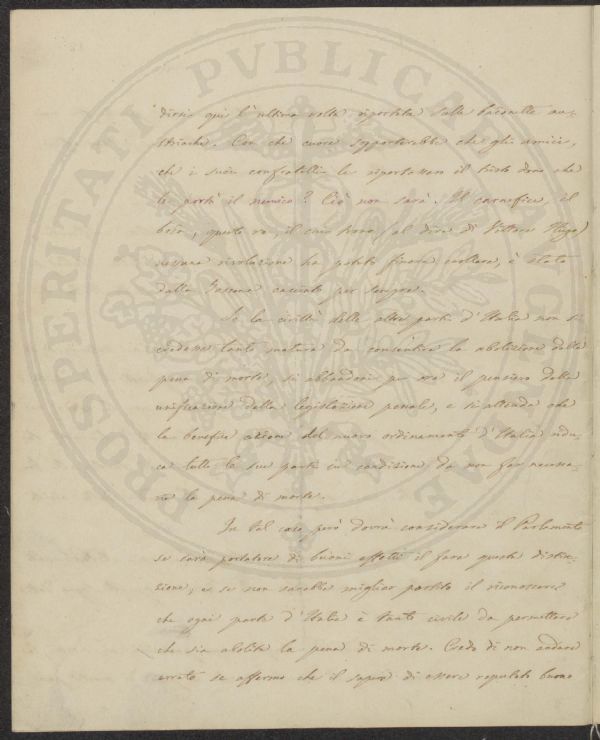 dirsi qui l'ultima volta riportata sulle baionette au-
striache. Con che cuore sopporterebbe che gli amici,
che i suoi confratelli le riportassero il tristo dono che
le portò il nemico? Ciò non sarà. Il carnefice, il
boia, questo re, il cui trono (al dire di Vittore Hugo)
nessuna rivoluzione ha potuto finora crollare, è stato
dalla Toscana cacciato per sempre.
Se la civiltà delle altre parti d'Italia non si
credesse tanto matura da consentire la abolizione della
pena di morte, si abbandoni per ora il pensiero della
unificazione della legislazione penale, e si attenda che
la benefica azione del nuovo ordinamento d'Italia ridu-
ca tutte le sue parti in condizione da non far necessa-
ria la pena di morte.
In tal caso però dovrà considerare il Parlamento
se sarà portatore di buoni effetti il fare questa distin-
zione, e se non sarebbe miglior partito il riconoscere
che ogni parte d'Italia è tanto civile da permettere
che sia abolita la pena di morte. Credo di non andare
errato se affermo che il sapere di essere reputato buono
PROSPERITATI PVBLICAE AVGENDAE